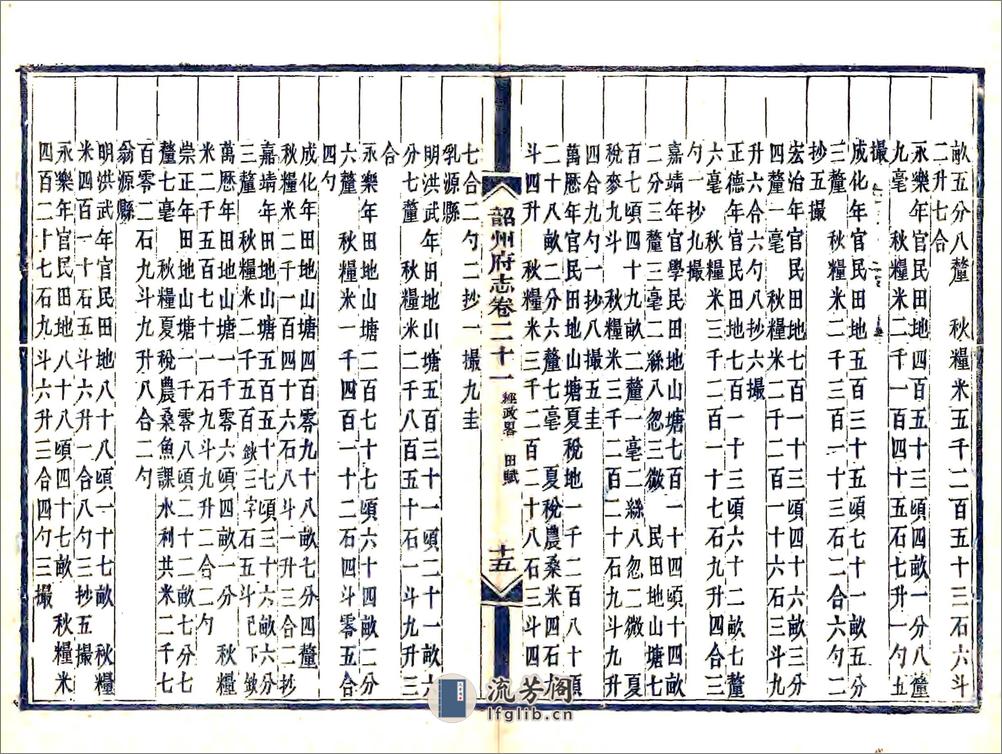 畝五分八釐　秋糧米五千二百五十三石六斗
二升七合
永樂年官民田地五百五十三頃四畝一分八釐
九毫　秋糧米二千一百四十五石七升一勺五
撮
成化年官民田地五百三十五頃七十一畝五分
三釐　秋糧米二千一百十三石二合六勺二
抄五撮
宏治年官民田地七百二十四頃四十六畝三分
四釐一毫　秋糧米二千二百一十六石三斗九
升六合六勺八抄六撮
正德年官民田地七百一十三頃六十二畝七釐
六毫　秋糧米三千二百一十七石九升四合三
勺一抄九撮
嘉靖年官學民田地山塘七百一十四頃四十畝
二分三釐三毫二絲八忽三微　民田地山塘七
百七頃四十九畝二釐一毫二絲八忽二微　夏
稅麥九斗　秋糧米三千二百二十石九斗六升
四合九勺一抄八撮五圭
萬厯年官民田地山塘夏稅地一千二百八十頃
二十八畝二分六釐七毫　夏稅農桑米四石九
斗四升　秋糧米三千二百二十八石三斗四升
七合二勺二抄一撮九圭
乳源縣
明洪武年田地山塘五百三十一頃二十一畝六
分七釐　秋糧米二千八百五十石一斗九升三
合
永樂年田地山塘二百七十七頃六十四畝二分
六釐　秋糧米一千四百一十二石四斗零五合
四勺
成化年田地山塘四百零九十八畝七分四釐
秋糧米二千一百四十六石八斗一升三合二抄
嘉靖年田地山塘五百五十七頃三十六畝六分
三釐　秋糧米二千五百缺三字石五斗已下缺
萬厯年田地山塘一千零六頃四畝一分　秋糧
米二千五百七十一石九斗九升二合二勺
崇正年田地山塘一千零八頃二十二畝七分七
釐七毫　秋糧夏稅農桑魚課水利共米二千七
百零二石九斗九升八合二勺
翁源縣
明洪武年官民田地八十八頃一十七畝　秋糧
米四百一十石五斗六升一合八勺三抄五撮
永樂年官民田地八十八頃四十七畝　秋糧米
四百二十七石九斗六升三合四勺三撮
韶州府志卷二十一　經政畧　田賦　十五
流芳閣
lfglib.cn